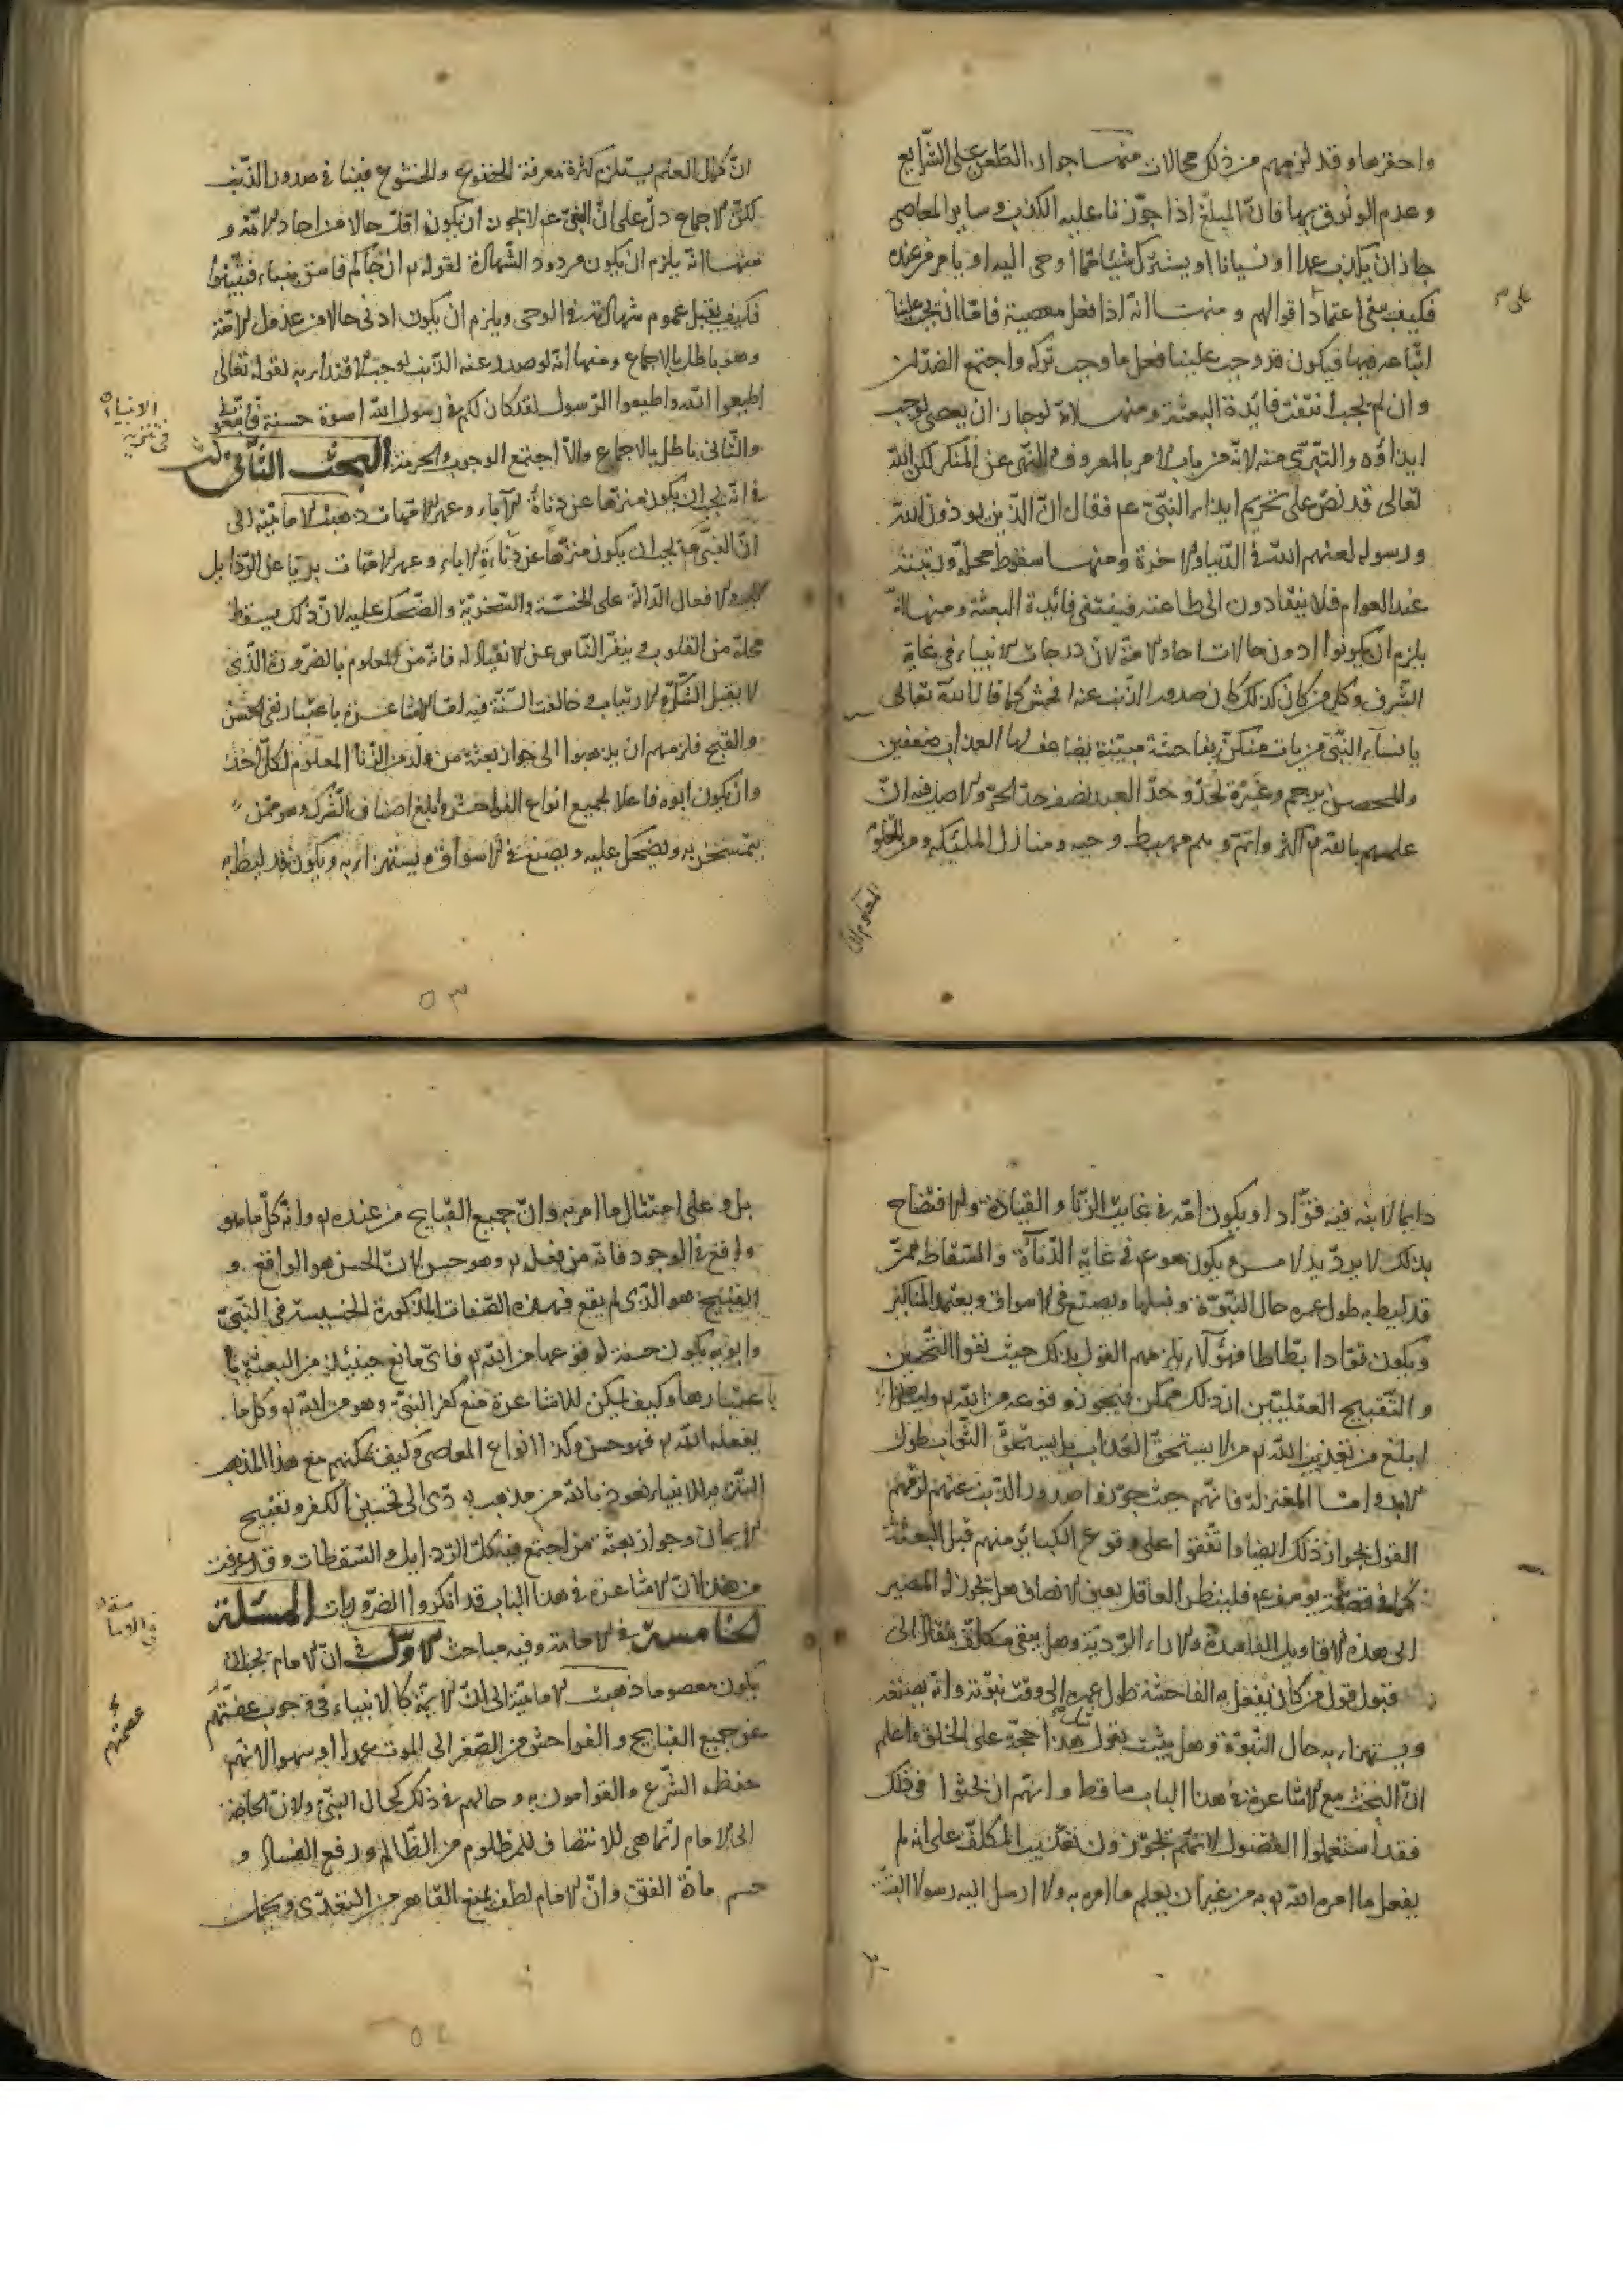 واحقرها وقد لزمهم من ذلك محالات منها جواز الطعن على الشرايع
وعدم الوثوق بها فان المبلغ اذا جوزنا عليه الكذب وساير المعاصى
جاز ان يكذب عمدا او نسيانا او يترك شيئا مما اوحى اليه او يامر من عنده
فكيف يبقى اعتماد على اقوالهم ومنها انه اذا فعل معصية فاما ان يجب علينا
اتباعه فيها فيكون قد وجب علينا فعل ما وجب تركه واجتمع الضدان
وان لم يجب انتفت فايدة البعثة ومنها انه لو جاز ان يعصى لوجب
ايذاؤه والتبرى منه لانه من باب الامر بالمعروف والنهى عن المنكر لكن الله
تعالى قد نص على تحريم ايذاء النبى عم فقال ان الذين يوذون الله
ورسوله لعنهم الله فى الدنيا والاخرة ومنها سقوط محله ورتبته
عند العوام فلا ينقادون الى طاعته فينتفى فائدة البعثة ومنها انه
يلزم ان يكونوا ادون حالا من احاد الامة لان درجات الانبياء فى غاية
الشرف وكل من كان كذلك كان صدور الذنب عنه افحش كما قال الله تعالى
يا نساء النبى من يات منكن بفاحشة مبينة يضاعف لها العذاب ضعفين
والمحصن يرجم وغيره يحد وحد العبد نصف حد الحر والاصل فيه ان
علمهم بالله تع اكثر واتم وهم مهبط وحيه ومنازل الملئكة ومن المعلوم
ان كمال العلم يستلزم كثرة معرفة الخضوع والخشوع فينافى صدور الذنب
لكن الاجماع دل على ان النبى عم لا يجوز ان يكون اقل حالا من احاد الامة و
منها انه يلزم ان يكون مردود الشهادة لقوله تع ان جاكم فاسق بنباء فتبينوا
فكيف يقبل عموم شهادته فى الوحى ويلزم ان يكون ادنى حالا من عدول الامة
وهو باطل بالاجماع ومنها انه لو صدر عنه الذنب لوجب الاقتداء به لقوله تعالى
اطيعوا الله واطيعوا الرسول لقد كان لكم فى رسول الله اسوة حسنة فاتبعونى
والثانى باطل بالاجماع والا اجتمع الوجوب والحرمة البحث الثالث
فى انه يجب ان يكون منزها عن دناءة الآباء وعهر الامهات ذهبت الامامية الى
ان النبى عم يجب ان يكون منزها عن دناءة الاباء وعهر الامهات بريا عن الرذايل
والافعال الدالة على الخسة والسخرية والضحك عليه لان ذلك يسقط
محله من القلوب وينفر الناس عن الانقياد له فانه من المعلوم بالضرورة الذى
لا يقبل الشك والارتياب وخالفت السنة فيه اما الاشاعرة باعتبار نفى الحسن
والقبح فلزمهم ان يذهبوا الى جواز بعثة من ولد من الزنا المعلوم لكل احد
وان يكون ابوه فاعلا لجميع انواع الفواحش وابلغ اصناف الشرك وهو ممن
يتمسخر به ويضحك عليه ويصفع فى الاسواق ويستهزاء به ويكون قد ليط به
فى تنزيه
الانبياء
٥٣
دايما لابنه فيه قوادا ويكون امه فى غاية الزنا والقيادة والافتضاح
بذلك لا يرد يد لامس ويكون هو عم فى غاية الدناءة والسقاطة ممن
قد ليط به طول عمره حال النبوة وقبلها ويصفع فى الاسواق ويعتمد المناكير
ويكون قوادا بطاطا فهؤلاء يلزمهم القول بذلك حيث نفوا التحسين
والتقبيح العقليين ان ذلك ممكن فيجوز وقوعه من الله تع وليس هذا
ابلغ من تعذيب الله تع من لا يستحق العذاب بل يستحق الثواب طول
الابد واما المعتزلة فانهم حيث جوزوا صدور الذنب عنهم لزمهم
القول بجواز ذلك ايضا واتفقوا على وقوع الكبائر منهم قبل البعثة
كما فى قصة يوسف عم فلينظر العاقل بعين الانصاف هل يجوز له المصير
الى هذه الاقاويل الفاسدة والاراء الردية وهل يبقى مكلف ينقاد الى
قبول قول من كان يفعل به الفاحشة طول عمره الى وقت نبوته وانه يصفع
ويستهزاء به حال النبوة وهل يثبت بقول هذا حجة على الخلق واعلم
ان البحث مع الاشاعرة فى هذا الباب ساقط وانهم ان بحثوا فى ذلك
فقد استعملوا الفضول لانهم يجوزون تعذيب المكلف على انه لم
يفعل ما امره الله تع به من غير ان يعلم ما امره به ولا ارسل اليه رسولا البتة
بل وعلى امتثال ما امر به وان جميع القبايح من عنده تع وانه كل ما هو
واقع فى الوجود فانه من فعله تع وهو حسن لان الحسن هو الواقع و
القبيح هو الذى لم يقع فهذه الصفات المذكورة الخسيسة فى النبى
وابويه يكون حسنة لوقوعها من الله تع فاى مانع حينئذ من البعثة
باعتبارها وكيف يمكن للاشاعرة منع كفر النبى وهو من الله تع وكل ما
يفعله الله تع فهو حسن وكذا انواع المعاصى وكيف يمكنهم مع هذا المذهب
التنزيه للانبياء نعوذ بالله من مذهب يودى الى تحسين الكفر وتقبيح
الايمان وجواز بعثة من اجتمع فيه كل الرذايل والسقطات وقد عرفت
من هذا ان الاشاعرة فى هذا الباب قد انكروا الضروريات المسئلة
الخامسة فى الامامة وفيه مباحث الاول فى ان الامام يجب ان
يكون معصوما ذهبت الامامية الى ان الائمة كالانبياء فى وجوب عصمتهم
عن جميع القبايح والفواحش من الصغر الى الموت عمدا او سهوا لانهم
حفظة الشرع والقوامون به وحالهم فى ذلك كحال النبى ولان الحاجة
الى الامام انما هى للانتصاف للمظلوم من الظالم ورفع الفساد و
حسم مادة الفتن وان الامام لطف يمنع القاهر من التعدى ويحمل
عصمتهم